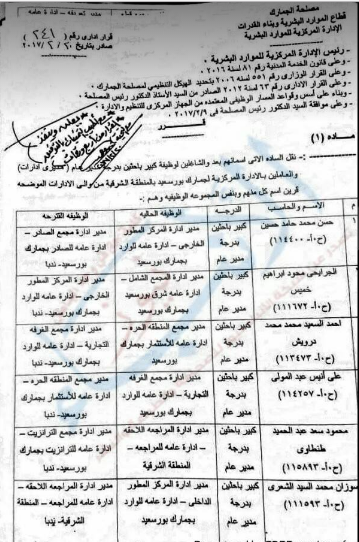 مصلحة الجمارك
قطاع الموارد البشرية وبناء القدرات
الإدارة المركزية للموارد البشرية
قرار إدارى رقم ( ٢٤١ )
صادر بتاريخ ٢٠ / ٢ / ٢٠١٧
- رئيس الإدارة المركزية للموارد البشرية
- وعلى قانون الخدمة المدنية رقم ٨١ لسنة ٢٠١٦ .
- وعلى القرار الوزارى رقم ٥٥١ لسنة ٢٠٠٦ بتحديد الهيكل التنظيمى لمصلحة الجمارك .
- وعلى القرار الإدارى رقم ٦٣ لسنة ٢٠١٢ الصادر من السيد الأستاذ الدكتور رئيس المصلحة .
- وبناء على أسس وقواعد المسار الوظيفى المعتمده من الجهاز المركزى للتنظيم والإدارة .
- وعلى موافقة السيد الدكتور رئيس المصلحة فى ٢٠١٧/٢/٩
قــرر
مــاده (١)
- نقل الساده الاتى اسمائهم بعد والشاغلين لوظيفة كبير باحثين بدرجة مدير عام (مديرى ادارات)
والعاملين بالادارة المركزية لجمارك بورسعيد بالمنطقة الشرقية من والى الادارات الموضحه
قرين اسم كل منهم وبنفس المجموعه الوظيفيه وهــم :-
م الاســم والحاسب الدرجــه الوظيفه الحاليه الوظيفه المقترحه
١ حسن محمد حامد حسين (ح٠أ- ١١٤٤٠٠) كبير باحثين بدرجة مدير عام مدير ادارة المركز المطور الخارجى – ادارة عامه للوارد بجمارك بورسعيد مدير ادارة مجمع الصادر – ادارة عامه للصادر بجمارك بورسعيد- ندبا
الجرايحى محمود ابراهيم خميس (ح٠أ- ١١١٦٧٢) كبير باحثين بدرجة مدير عام مدير ادارة المجمع الشامل – ادارة عامه شرق بورسعيد مدير ادارة المركز المطور الخارجى – ادارة عامه للوارد بجمارك بورسعيد- ندبا
احمد السعيد محمد محمد درويش (ح٠أ- ١١٣٤٧٣) كبير باحثين بدرجة مدير عام مدير مجمع المنطقه الحره – ادارة عامه للاستثمار بجمارك بورسعيد مدير ادارة مجمع الغرفه التجارية – ادارة عامه للوارد بجمارك بورسعيد- ندبا
على أنيس عبد المولى (ح٠أ- ١١٤٢٥٧) كبير باحثين بدرجة مدير عام مدير ادارة مجمع الغرفه التجارية – ادارة عامه للوارد بجمارك بورسعيد مدير مجمع المنطقه الحره – ادارة عامه للأستثمار بجمارك بورسعيد- ندبا
محمود سعد عبد الحميد طنطاوى (ح٠أ- ١١٥٨٩٣) كبير باحثين بدرجة مدير عام مدير ادارة المراجعه اللاحقه – ادارة عامه للمراجعه – المنطقة الشرقية مدير ادارة مجمع الترانزيت – ادارة عامه للترانزيت بجمارك بورسعيد- ندبا
سوزان محمد السيد الشعرى (ح٠أ- ١١١٥٩٣) كبير باحثين بدرجة مدير عام مدير ادارة المركز المطور الداخلى – ادارة عامه للوارد بجمارك بورسعيد مدير ادارة المراجعه اللاحقه – ادارة عامه للمراجعه – المنطقة الشرقية- ندبا